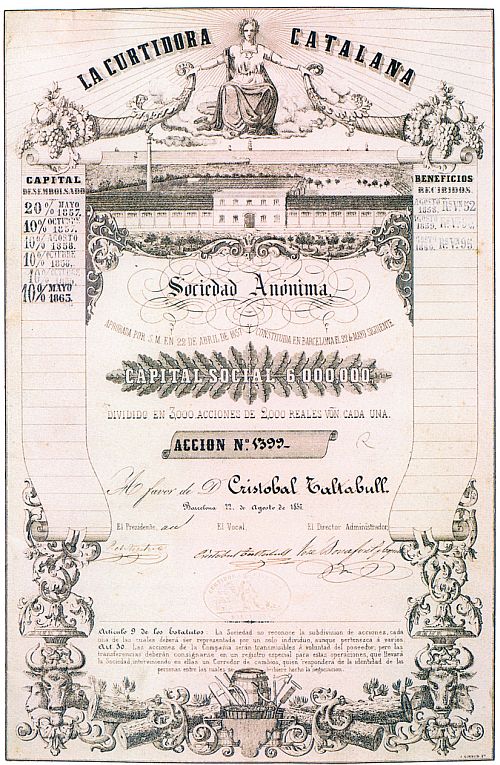 LA CURTIDORA CATALANA
CAPITAL
DESEMBOLSADO
20 % MAYO
1857.
10 % OCTUBRE
1857.
10 % AGOSTO
1858.
10 % OCTUBRE
10 %
10 % MAYO
1863.
BENEFICIOS
RECIBIDOS.
Sociedad Anónima
APROBADA POR S. M. EN 22 DE ABRIL DE CONSTITUIDA EN BARCELONA EL MAYO SIGUIENTE
CAPITAL SOCIAL 6,000,000,
DIVIDIDO EN 3,000 ACCIONES DE 2,000 REALES VÓN CADA UNA.
ACCION Nº. 1399
A favor de D. Cristobal Taltabull.
Barcelona 22, de Agosto de 1857.
El Presidente, El Vocal, El Director Administrador,
Cristobal Taltabull
Artículo 9 de los Estatutos. La Sociedad no reconoce la subdivision de acciones, cada
una de las cuales deberá ser representada por un solo individuo, aunque pertenezca á varios
Art. 30. Las acciones de la Compañia serán transmisibles á voluntad del poseedor; pero las
transferencias deberán consignarse en un registro especial para estas operaciones, que llevará
la Sociedad, interviniendo en ellas un Corredor de cambios, quien responderá de la identidad de las
personas entre las cuales se hubiere hecho la negociacion.